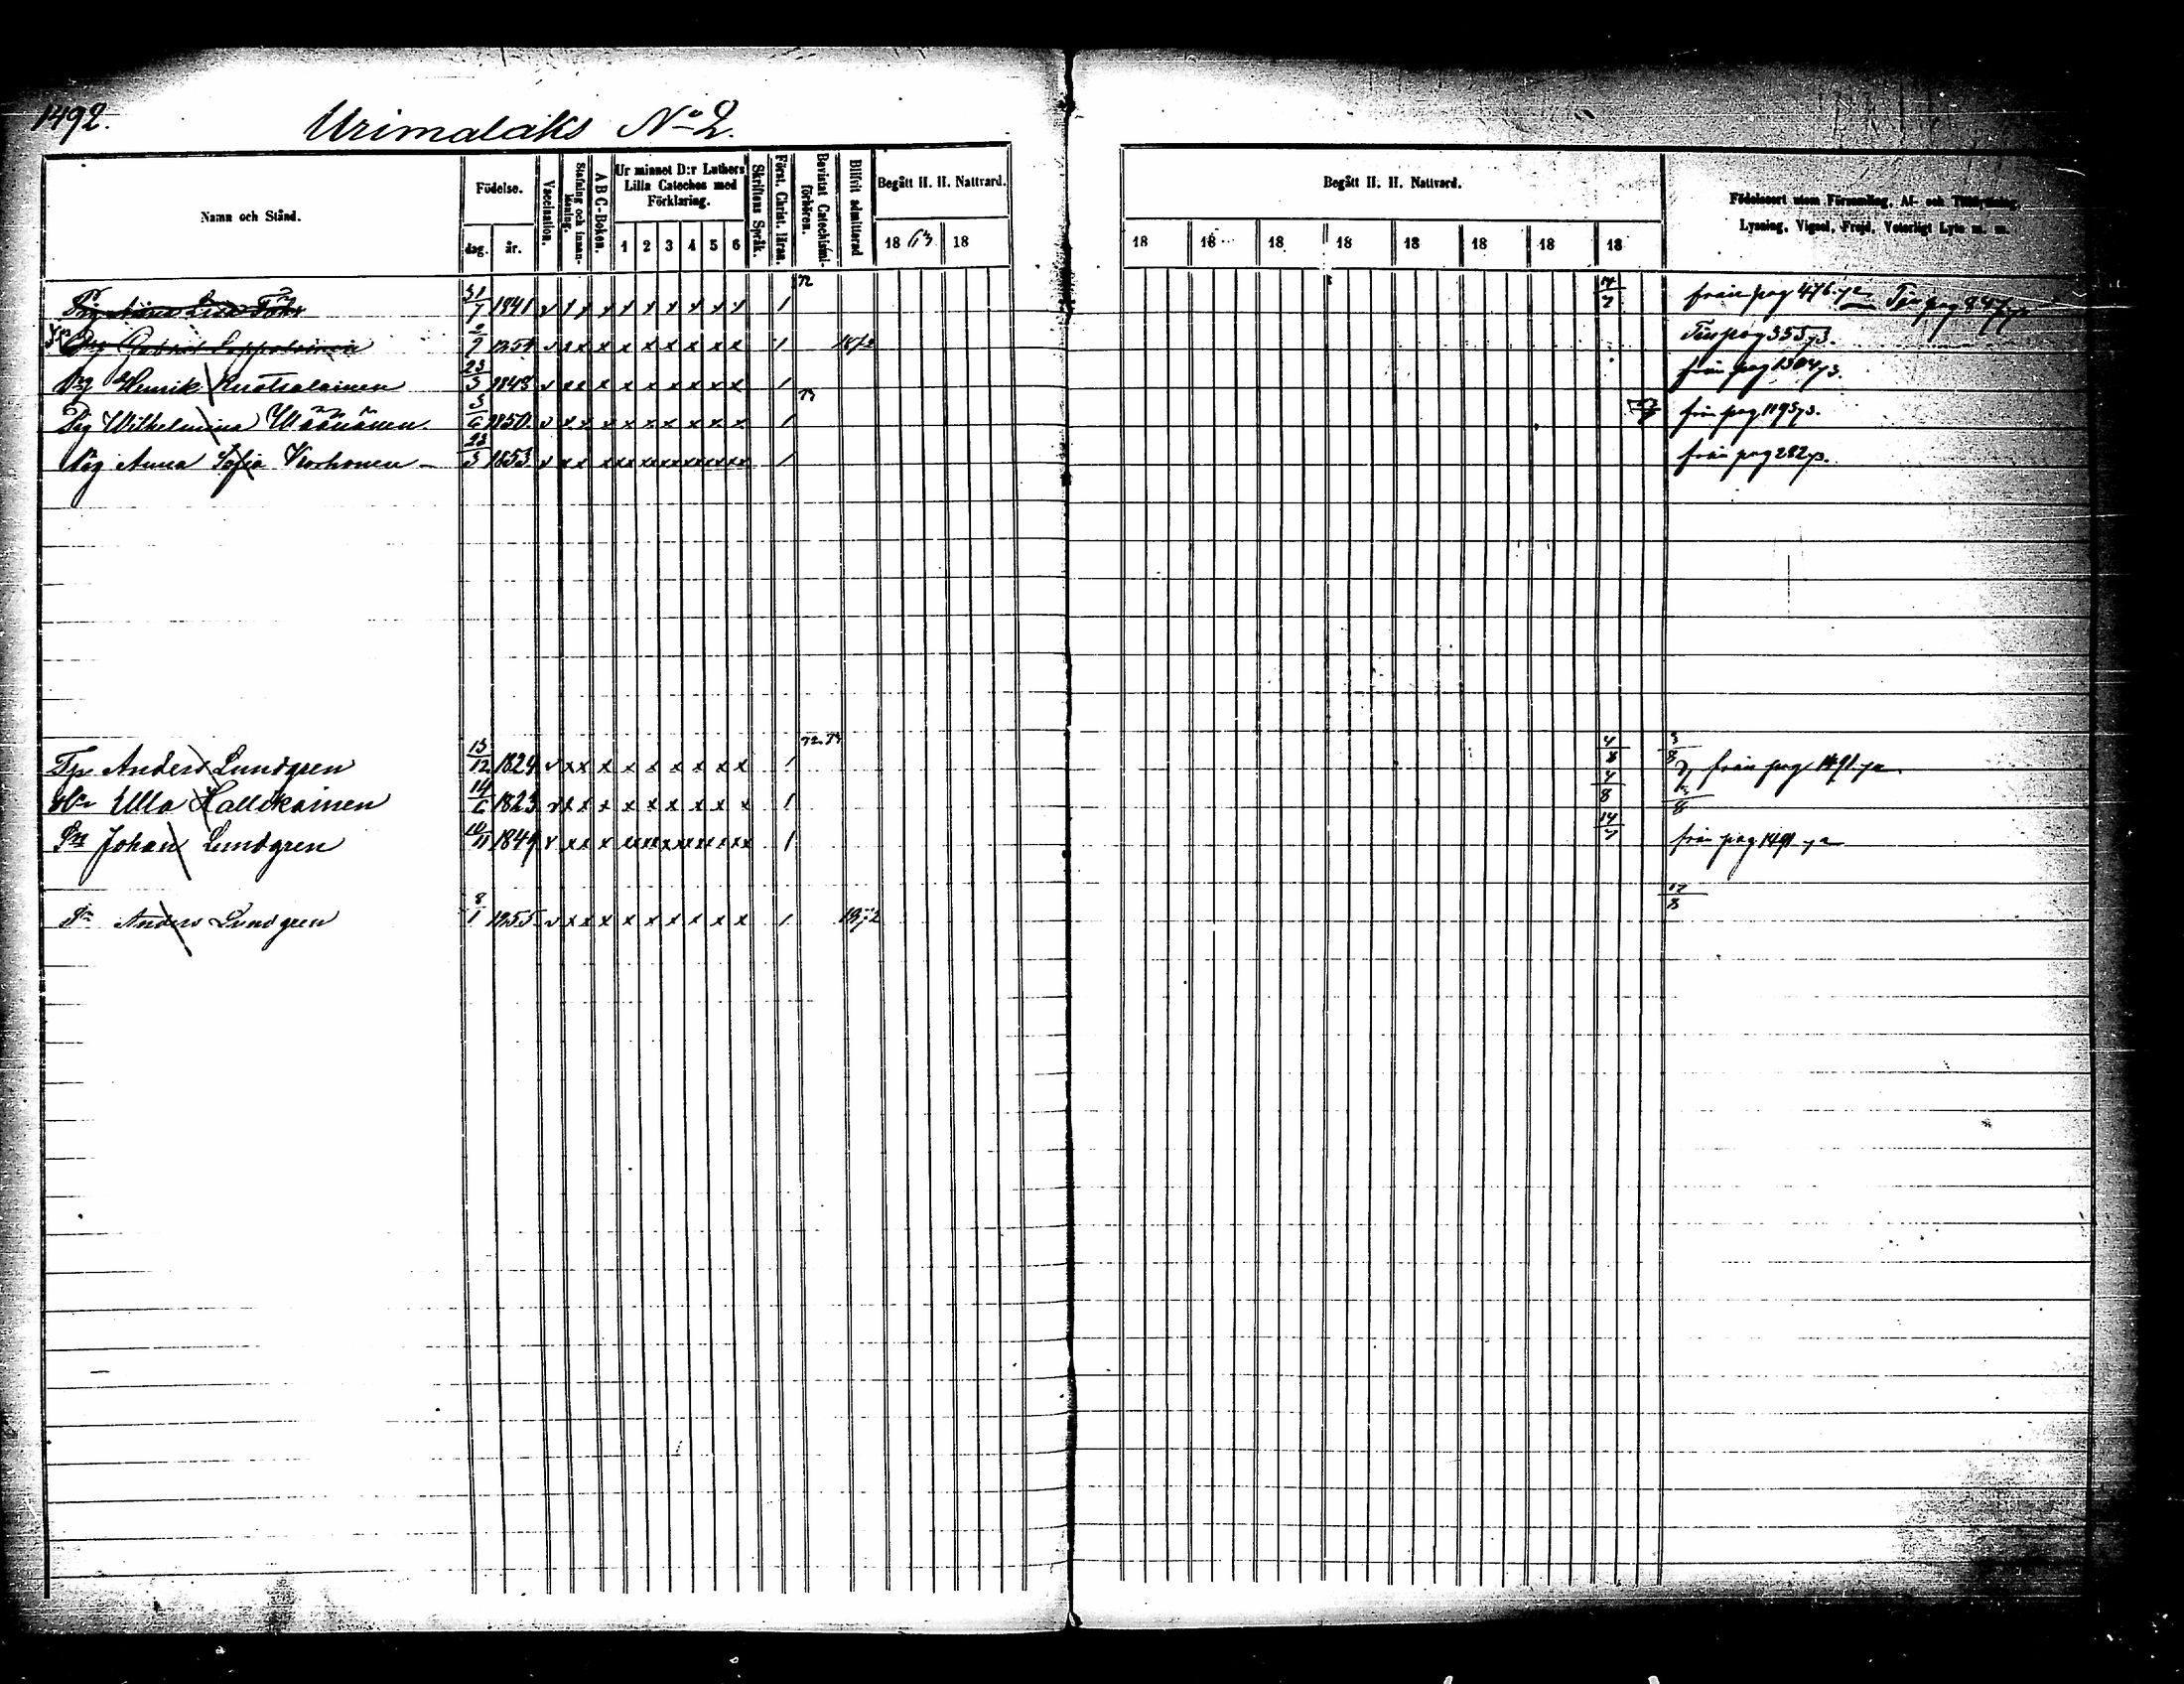 1492.
Urimalaks No 2.
Namn och Stånd.
Födelse.
dag. år.
Vaccination.
Stafning och innanläsning.
A B C-Boken.
Ur minnet D:r Luthers Lilla Cateches med Förklaring.
1 2 3 4 5 6
Skriftens Språk.
Först. Christ. läran.
Bevistat Catechismiförhören.
Blifvit admitterad
Begått H. H. Nattvard.
18 63 18
Begått H. H. Nattvard.
18 18 18 18 18 18 18 18
Födelseort utom Församling, Af- och Tillflyttning, Lysning, Vigsel, Frejd, Vaterligt Lyte m. m.
31/7 1841 v x x x x x x x x x 1 72 14/7 från pag 476
Gabriel Leppalainen 2/7 v x x x x x x x x x 1 1872 pag 353
Henrik 23/3 1848 v x x x x x x x x x 1 från pag 1304
Pig Wilhelmina Wäänänen 3/6 1850 v x x x x x x x x x 1 73 från pag 1195
Pig Anna Sofia Korhonen 23/3 1853 v x x x xx xx xx xx xx 1 från pag 282
Anders Lundgren 13/12 1829 v x x x x x x x x x 1 72 73 4/8 3/8 från pag 1491
Ulla Hallikainen 14/6 1823 v x x x x x x x x x 1 4/8 3/8
Johan Lundgren 10/11 1849 v x x x xx xx xx xx xx 1 14/7 från pag 1491
Anders Lundgren 8/1 1855 v x x x x x x x x x 1 1872 17/8